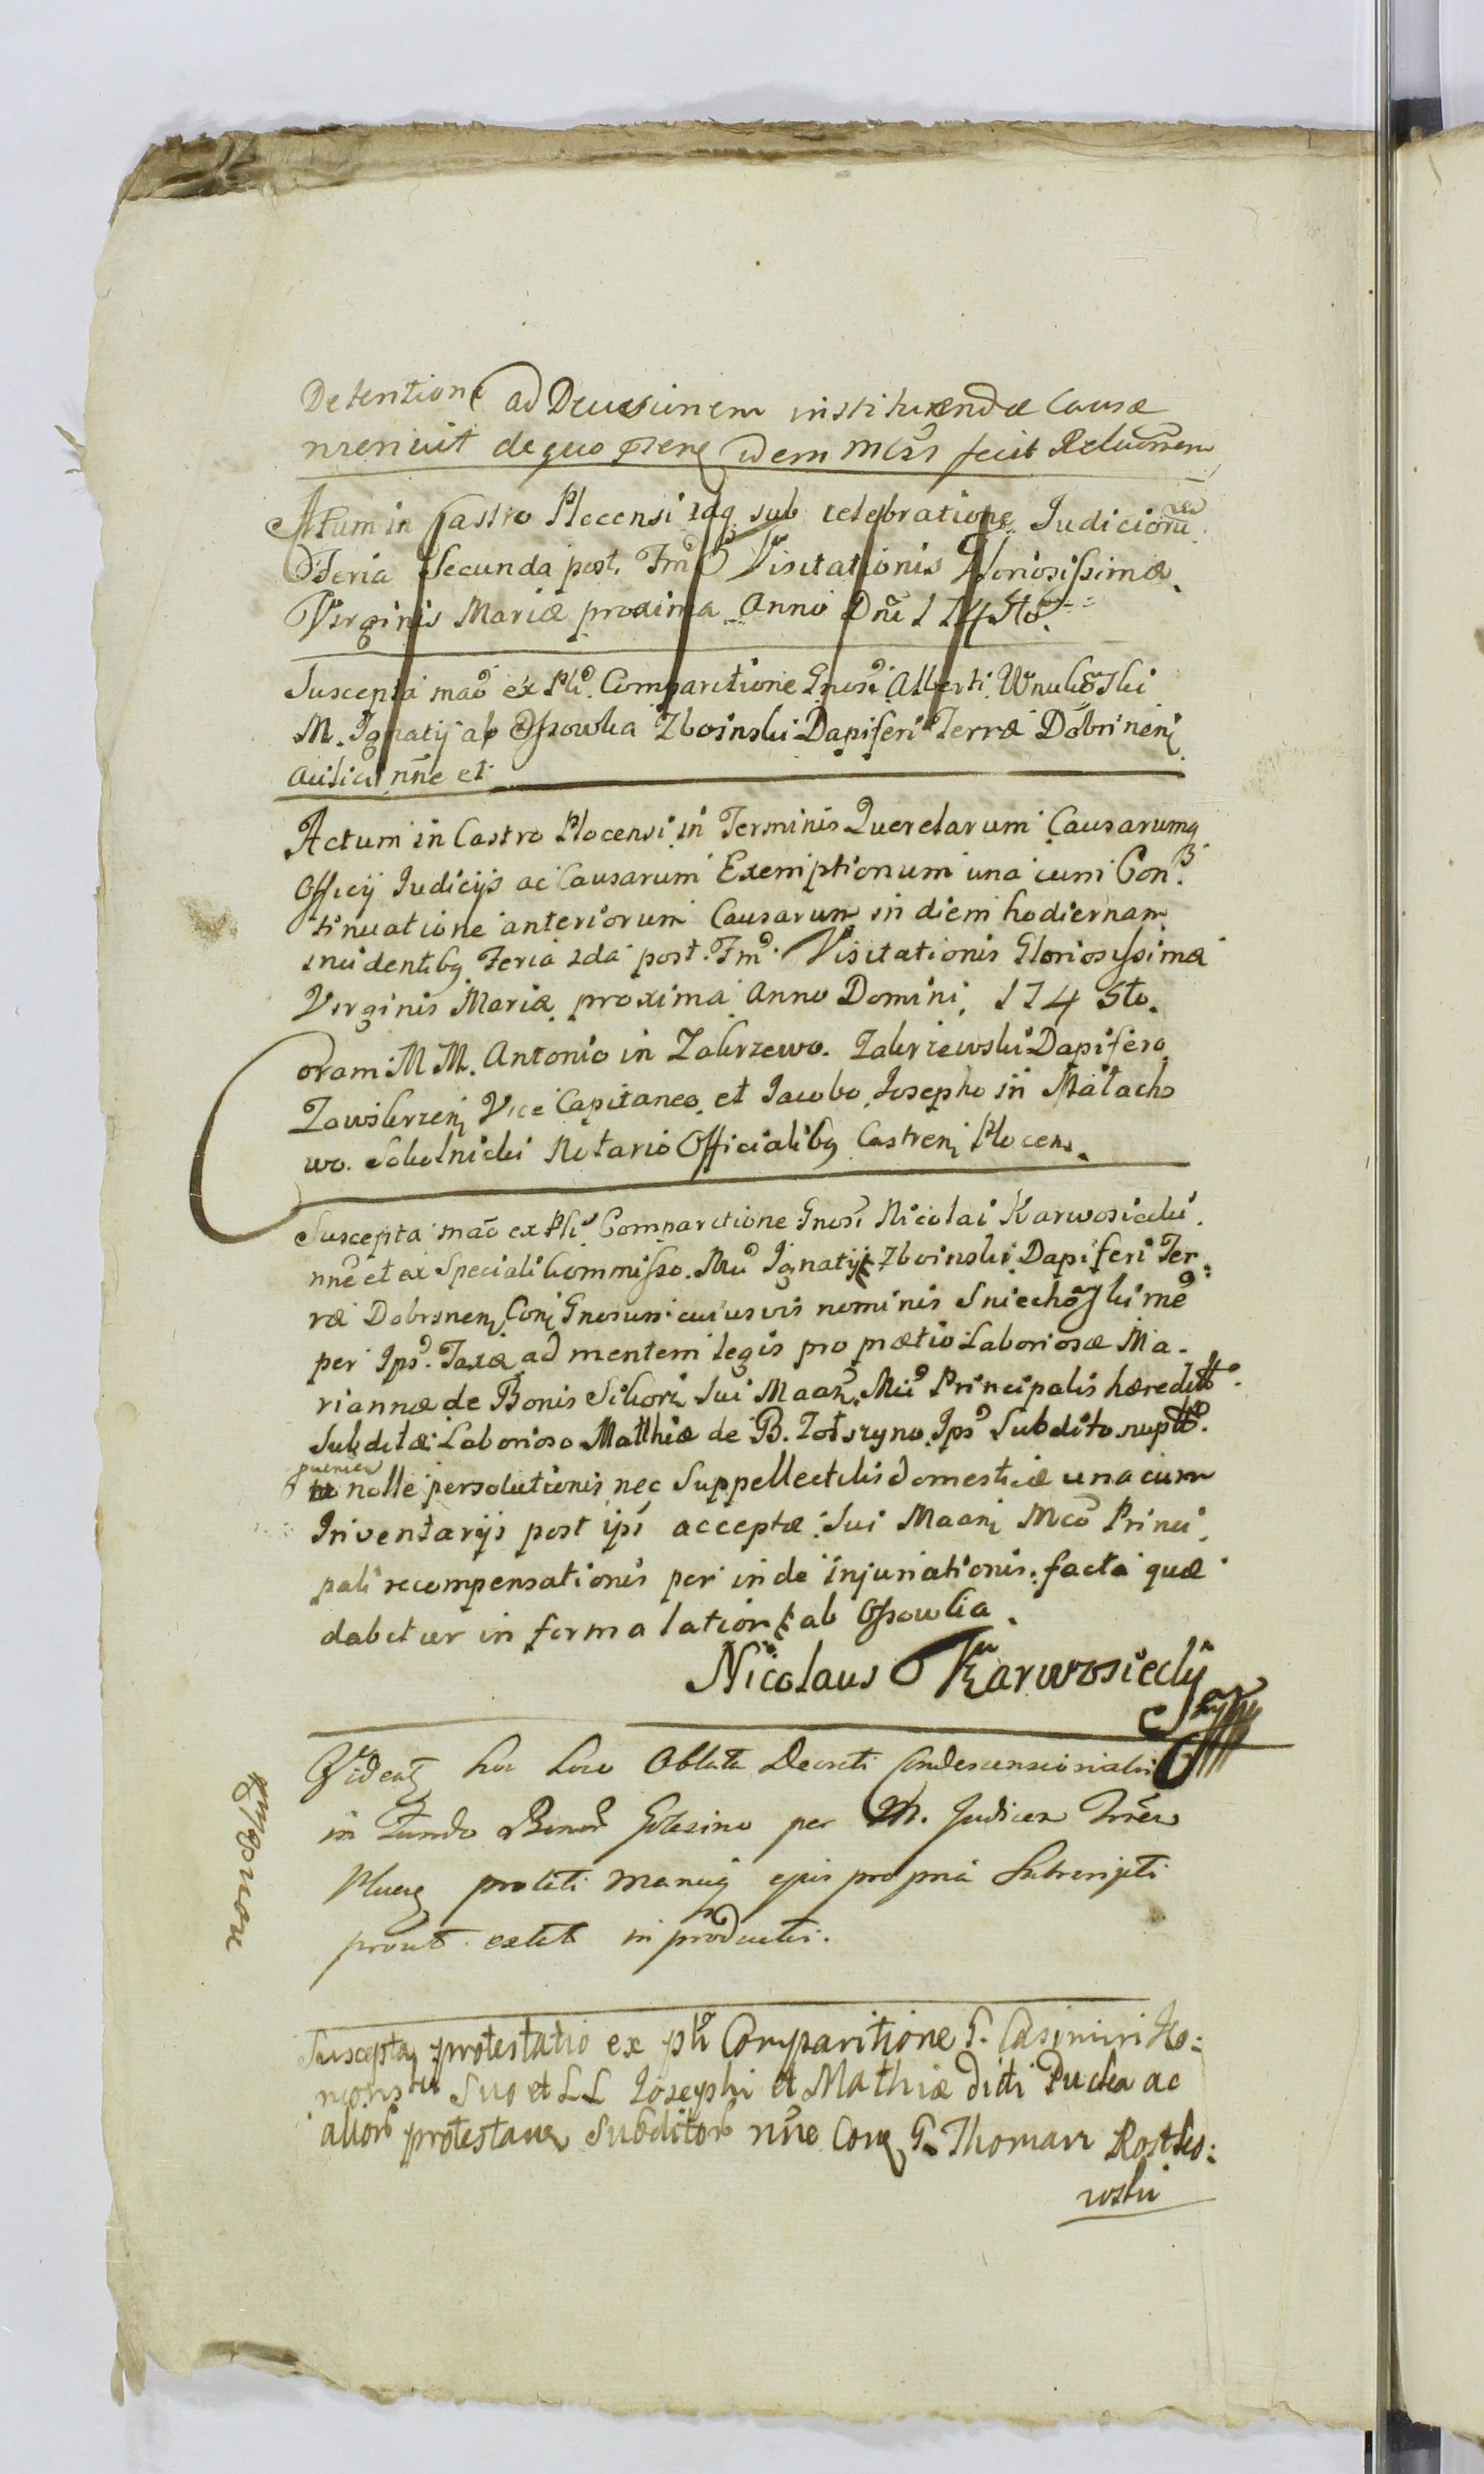 Detentione ad Decisionem instituendæ Causæ
idem fecit Relationem
Actum in Castro Plocensi idq sub celebratione Judiciorũ
Feria Secunda post Fm̃ Visitationis Gloriosissimæ
Virginis Mariæ proxima Anno Dñi 1745to
Suscepta mañ ex Pli Comparitione Gnosi Alberti Wnuk
M. Ignatij ab Ossowka Zboinski Dapiferi Terræ Dobrinen
nñe et
Actum in Castro Plocensi in Terminis Querelarum Causarumq
Officij Judicijs ac Causarum Exemptionum una cum Con
tinuatione anteriorum Causarum in diem hodiernam
incidentibq Feria 2da post Fm Visitationis Gloriosissimæ
Virginis Mariæ proxima Anno Domini 1745to.
Coram M M. Antonio in Zakrzewo Zakrzewski Dapifero
Zawskrzen Vice Capitaneo et Jacobo Josepho in Małacho
wo. Sokolnicki Notario Officialibq Castren Plocens.
Suscepta mañ ex Pli Comparitione Gnosi Nicolai Karwosiecki
nñe et ex Speciali Commisso Mci Ignatij Zboinski Dapiferi Ter:
ræ Dobrinen Con Gnosum cuiusvis nominis
per Ips Taxæ ad mentem legis pro prætio Laboriosæ Ma-
riannæ de Bonis Sikorz Sui Maan Mci Principalis hæredit
Subditæ Laborioso Matthiæ de B. Ips Subdito nupt
nolle persolutionis nec Suppellectilis domesticæ una cum
Inventarijs post ips acceptæ Sui Maan Mco Princi
pali recompensationis per inde injuriationis. facta quæ
dabitur in forma lation ab Ossowka.
Nicolaus Karwosiecky
Videat hoc Loco Oblata Decreti Condescensionialis
in Fundo per M. Judicem
manuq ejus propria Subscripti
prout extat in productis.
Suscepta protestatio ex pli Comparitione G. Casimiri
Suo et LL Josephi et Mathiæ dicti Pucka ac
alior protestan Subditor nñe Con G. Thomam Rostko:
wski